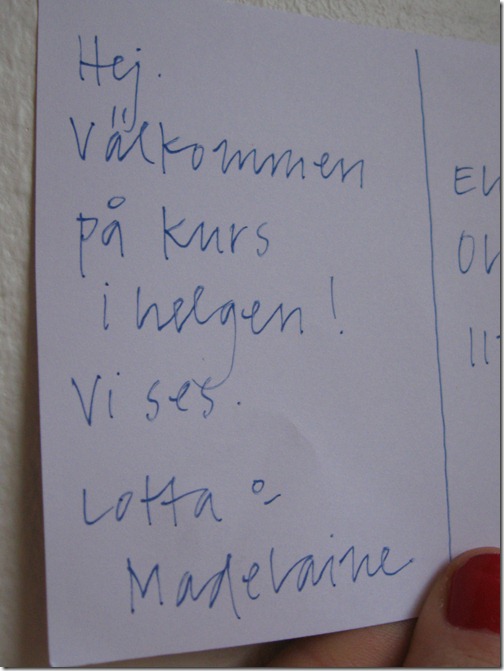 Hej.
Välkommen
på kurs
i helgen!
Vi ses.
Lotta o
Madelaine